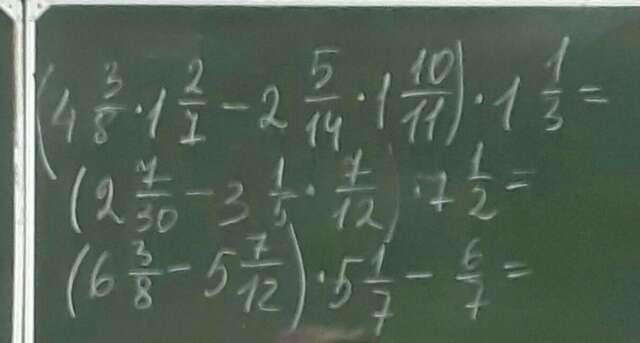 (4 3/8 · 1 2/7 - 2 5/14 · 1 10/11) · 1 1/3 =
(2 7/30 - 3 1/5 · 7/12) · 7 1/2 =
(6 3/8 - 5 7/12) · 5 1/7 - 6/7 =